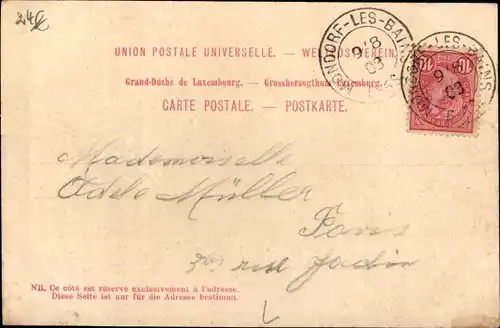 24 €
UNION POSTALE UNIVERSELLE. — WELTPOSTVEREIN.
MONDORF-LES-BAINS
9 8
03
MONDORF-LES-BAINS
9 8
03
Grand-Duché de Luxembourg. — Grossherzogthum Luxemburg.
CARTE POSTALE. — POSTKARTE.
Mademoiselle
Adèle Müller
Paris
rue Jadin
NB. Ce côté est réservé exclusivement à l'adresse.
Diese Seite ist nur für die Adresse bestimmt.